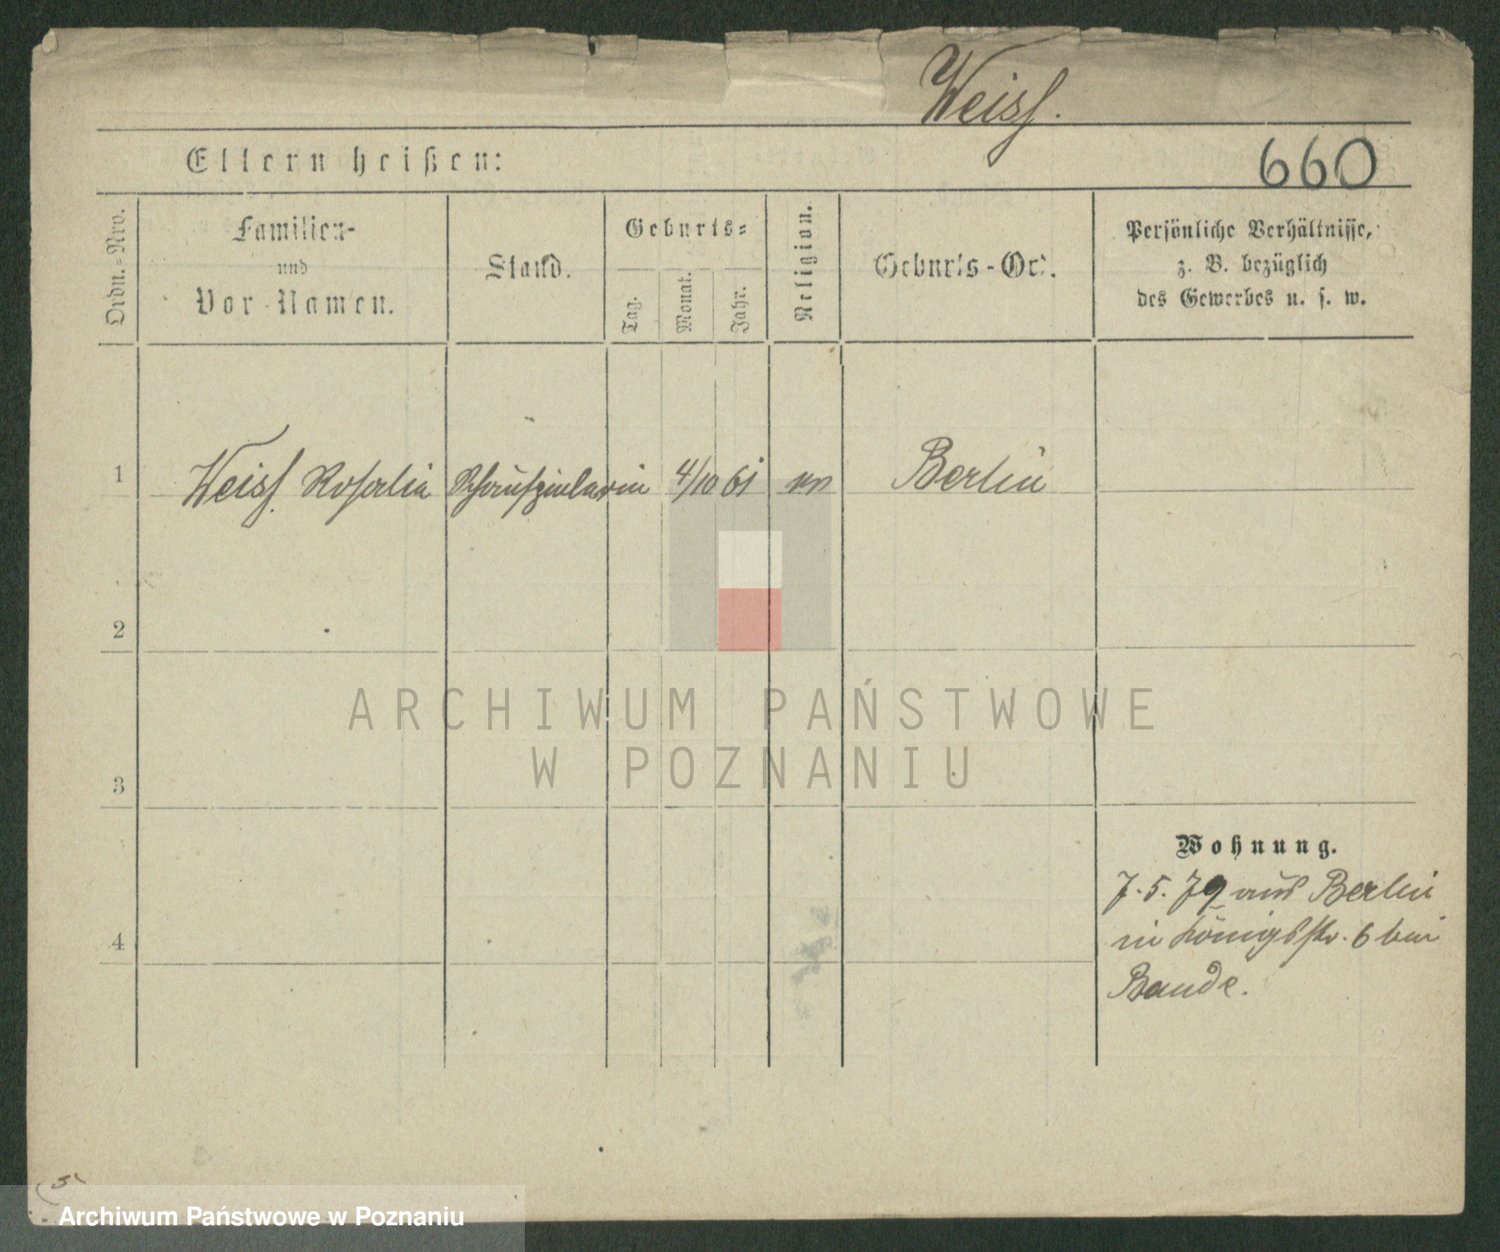 Weiss.
Eltern heißen:
660
Ordn.-Nro.
Familien-
und
Vor-Namen.
Stand.
Geburts-
Tag.
Monat.
Jahr.
Religion.
Geburts-Ort.
Persönliche Verhältnisse,
z. B. bezüglich
des Gewerbes u. s. w.
1 Weiss Rosalia Schauspielerin 4/10 61 Berlin
2
3
4
Wohnung.
7.5.79 aus Berlin
in Königsstr. 6 bei
Bande.
ARCHIWUM PAŃSTWOWE
W POZNANIU
Archiwum Państwowe w Poznaniu